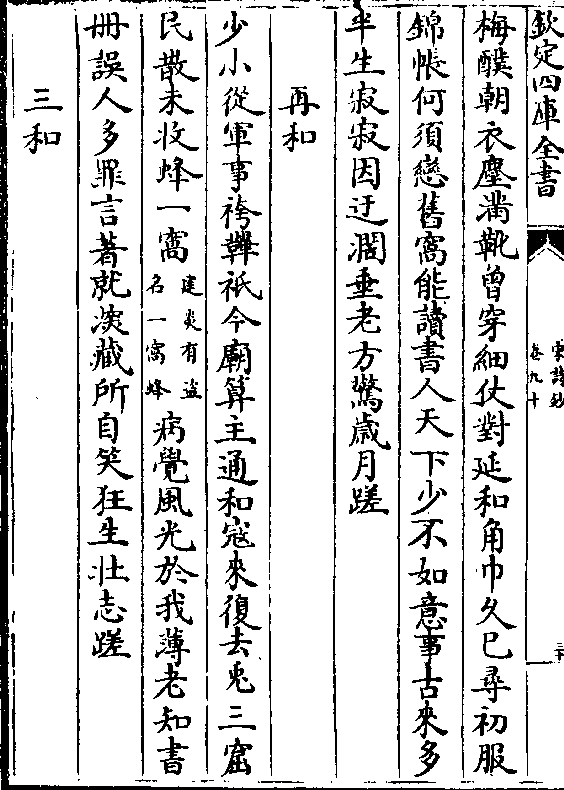 欽定四庫全書
宋詩鈔
卷九十
三十一
梅醭朝衣塵滿靴曾穿細仗對延和角巾久已尋初服
錦帳何須戀舊窩能讀書人天下少不如意事古來多
半生寂寂因迂濶垂老方驚歲月蹉
再和
少小從軍事袴鞾祇今廟算主通和寇來復去兎三窟
民散未收蜂一窩建炎有盜名一窩蜂病覺風光於我薄老知書
册誤人多罪言著就滚藏所自笑狂生壯志蹉
三和